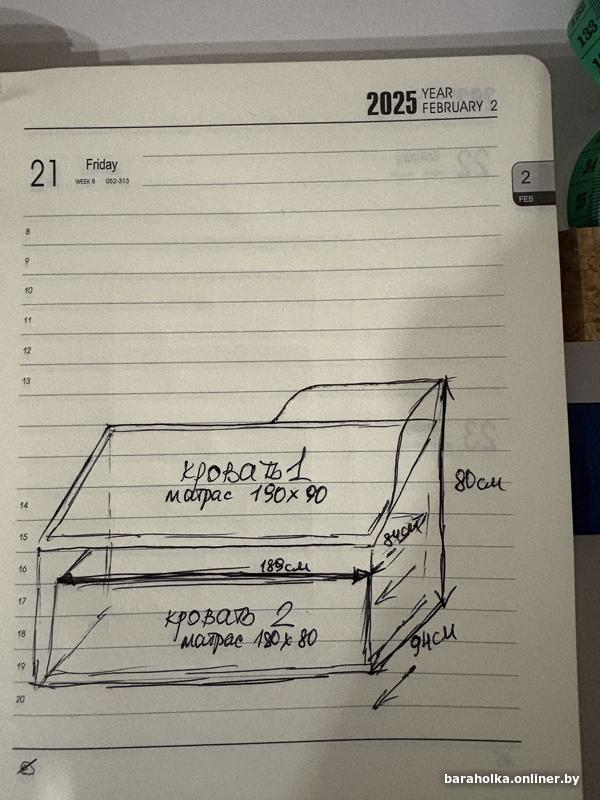 2025 YEAR
FEBRUARY 2
21 Friday
WEEK 8 052-313
2
FEB
8
9
10
11
12
13
14
15
16
17
18
19
20
кровать 1
матрас 190х90
80см
84см
189см
кровать 2
матрас 180х80
94см
133
24
25
baraholka.onliner.by